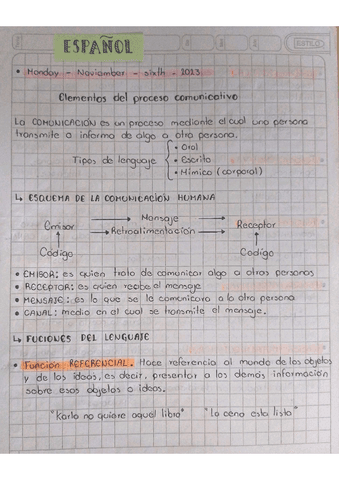 ESPAÑOL
ESTILO
• Monday - Noviember - sixth - 2023
Elementos del proceso comunicativo
La COMUNICACIÓN es un proceso mediante el cual una persona
transmite o informa de algo a otra persona.
• Oral
Tipos de lenguaje • Escrito
• Mímico (corporal)
↳ ESQUEMA DE LA COMUNICACIÓN HUMANA
Emisor Mensaje Receptor
Retroalimentación
Código Código
• EMISOR: es quien trata de comunicar algo a otras personas
• RECEPTOR: es quien recibe el mensaje
• MENSAJE: es lo que se le comunicara a la otra persona
• CANAL: medio en el cual se transmite el mensaje.
↳ FUCIONES DEL LENGUAJE
• Función REFERENCIAL. Hace referencia al mundo de los objetos
y de las ideas, es decir, presentar a los demás información
sobre esos objetos o ideas.
"Karla no quiere aquel libro" "La cena esta lista"